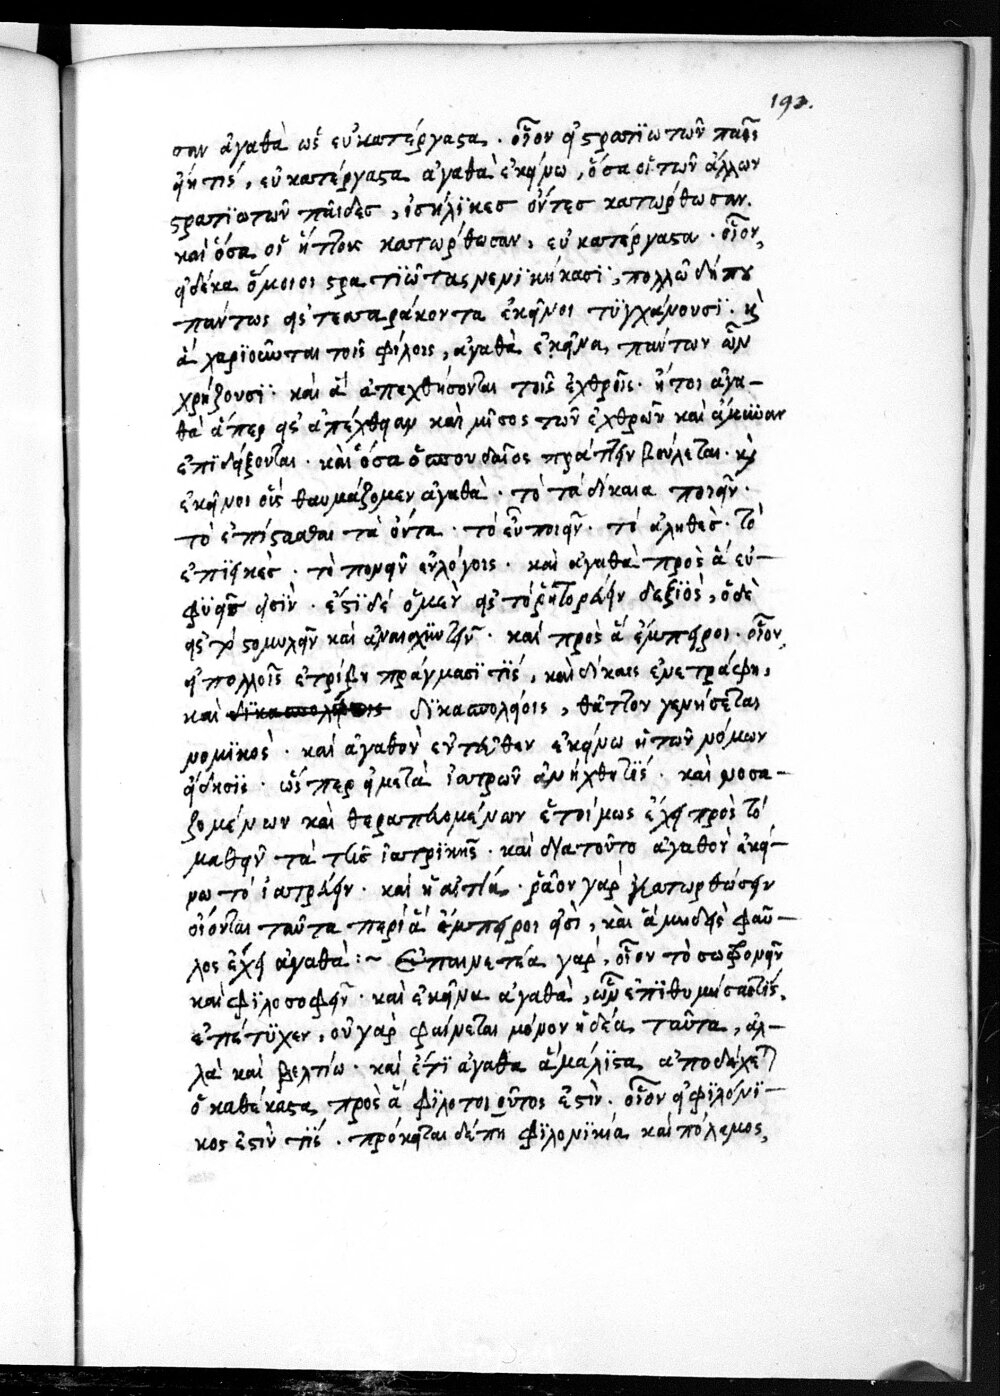 193.
σαν ἀγαθὰ ὡς εὐκατέργαστα · οἷον εἰ στρατιωτῶν παῖς
εἴη τίς, εὐκατέργαστα ἀγαθὰ ἐκείνω, ὅσα οἱ τῶν ἄλλων
στρατιωτῶν παῖδες, ἰσήλικες ὄντες κατώρθωσαν.
καὶ ὅσα οἱ ἥττους κατώρθωσαν, εὐκατέργαστα · οἷον,
εἰ δέκα ὅμοιοι στρατιώτας νενικήκασι, πολλῶ δήπου
πάντως εἰ τεσσαράκοντα ἐκεῖνοι τυγχάνουσι · καὶ
ἃ χαριοῦνται τοῖς φίλοις, ἀγαθὰ ἐκεῖνα, πάντων ὧν
χρήζουσι · καὶ ἃ ἀπεχθήσονται τοῖς ἐχθροῖς · ἤτοι ἀγα-
θὰ ἅπερ εἰς ἀπέχθειαν καὶ μῖσος τῶν ἐχθρῶν καὶ ἀνίαν
ἐπιδείξονται · καὶ ὅσα ὁ σπουδαῖος πράττειν βούλεται · καὶ
ἐκεῖνοι οὓς θαυμάζομεν ἀγαθὰ · τὸ τὰ δίκαια ποιεῖν ·
τὸ ἐπίστασθαι τὰ ὄντα · τὸ εὖ ποιεῖν · τὸ ἀληθὲς · τὸ
ἐπιεικὲς · τὸ πονεῖν εὐλόγοις · καὶ ἀγαθὰ πρὸς ἃ εὐ-
φυεῖς εἰσὶν · ἔστι δέ ὁ μὲν εἰς τὸ ῥητορεύειν δεξιὸς, ὁ δὲ
εἰς τὸ στομυλεῖν καὶ ἀναισχυντεῖν · καὶ πρὸς ἃ ἔμπειροι · οἷον,
εἰ πολλοῖς ἐτρίβη πράγμασί τίς, καὶ δίκαις ἐνετράφη,
καὶ δικασπολείοις, θᾶττον γεννήσεται
νομικὸς · καὶ ἀγαθὸν ἐντεῦθεν ἐκείνω ἡ τῶν νόμων
εἴδησις · ὥσπερ εἰ μετὰ ἰατρῶν ἀνήχθη τίς · καὶ νοσα-
ζομένων καὶ θεραπευομένων ἑτοίμως ἔχει πρὸς τὸ
μαθεῖν τὰ τῆς ἰατρικῆς · καὶ διατοῦτο ἀγαθὸν ἐκεί-
νω τὸ ἰατρεύειν · καὶ ἡ αἰτία · ῥᾶον γὰρ κατωρθώσειν
οἴονται ταῦτα περὶ ἃ ἔμπειροι εἰσὶ, καὶ ἃ μηδεὶς φαῦ-
λος ἔχει ἀγαθὰ :~ Ἐπαινετέα γὰρ, οἷον τὸ σωφρονεῖν
καὶ φιλοσοφεῖν · καὶ ἐκεῖνα ἀγαθὰ, ὧν ἐπιθυμήσας τίς,
ἐπέτυχεν, οὐ γὰρ φαίνεται μόνον ἡδέα ταῦτα, ἀλ-
λὰ καὶ βελτίω · καὶ ἔτι ἀγαθὰ ἃ μάλιστα ἀποδέχεται
ὁ καθέκαστα πρὸς ἃ φιλοτοιοῦτος ἐστὶν · οἷον εἰ φιλόνι-
κος ἐστίν τίς · πρόκειται δέ πη φιλονικία καὶ πόλεμος,